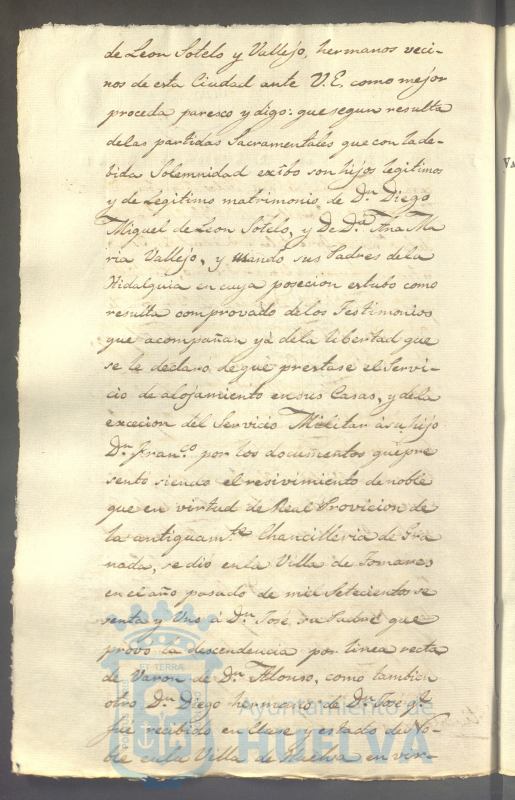 de Leon Sotelo y Vallejo, hermanos veci-
nos de esta Ciudad ante V.E. como mejor
proceda paresco y digo: que segun resulta
delas partidas Sacramentales que con la de-
bida Solemnidad exîbo son hijos legitimos
y de Legitimo matrimonio de Dn. Diego
Miguel de Leon Sotelo, y De Da. Ana Ma
ria Vallejo, y usando sus Padres de la
Hidalguia en cuya posecion estubo como
resulta comprovado delos Testimonios
que acompañan yá dela libertad que
se le declaró de què prestase el Servi-
cio de alojamiento en sus Casas, y dela
excecion del Servicio Militar á su hijo
Dn. Franco. por los documentos que pre
sento siendo el resivimiento de noble
que en virtud de Real Provicion de
la antiguamte. Chancilleria de Gra
nada, se dio en la Villa de Tomares
en el año pasado de mil Setecientos se
senta y Uno á Dn. José, su Padre que
provo la descendencia por linea recta
de Varon de Dn. Alonso, como tambien
otro Dn. Diego hermano de Dn. José qe.
fué recibido en Clase y estado de No-
ble en la Villa de Huelva en vir-
ET TERRÆ
Ayuntamiento de
HUELVA